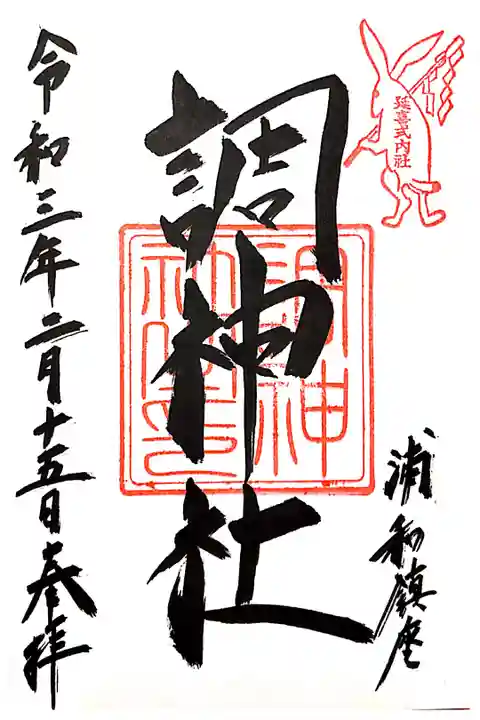 延喜式内社
浦和鎮座
調神社
調神
社之印
令和三年二月十五日奉拝